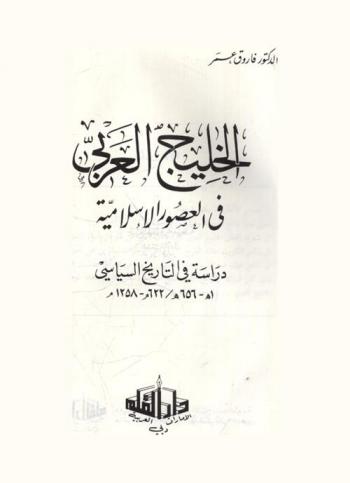 الدكتور فاروق عمر
الخليج العربي
في العصور الإسلامية
دراسة في التاريخ السياسي
١هـ - ٦٥٦هـ / ٦٢٢م - ١٢٥٨م
دار القلم
الإمارات العربية
دبي